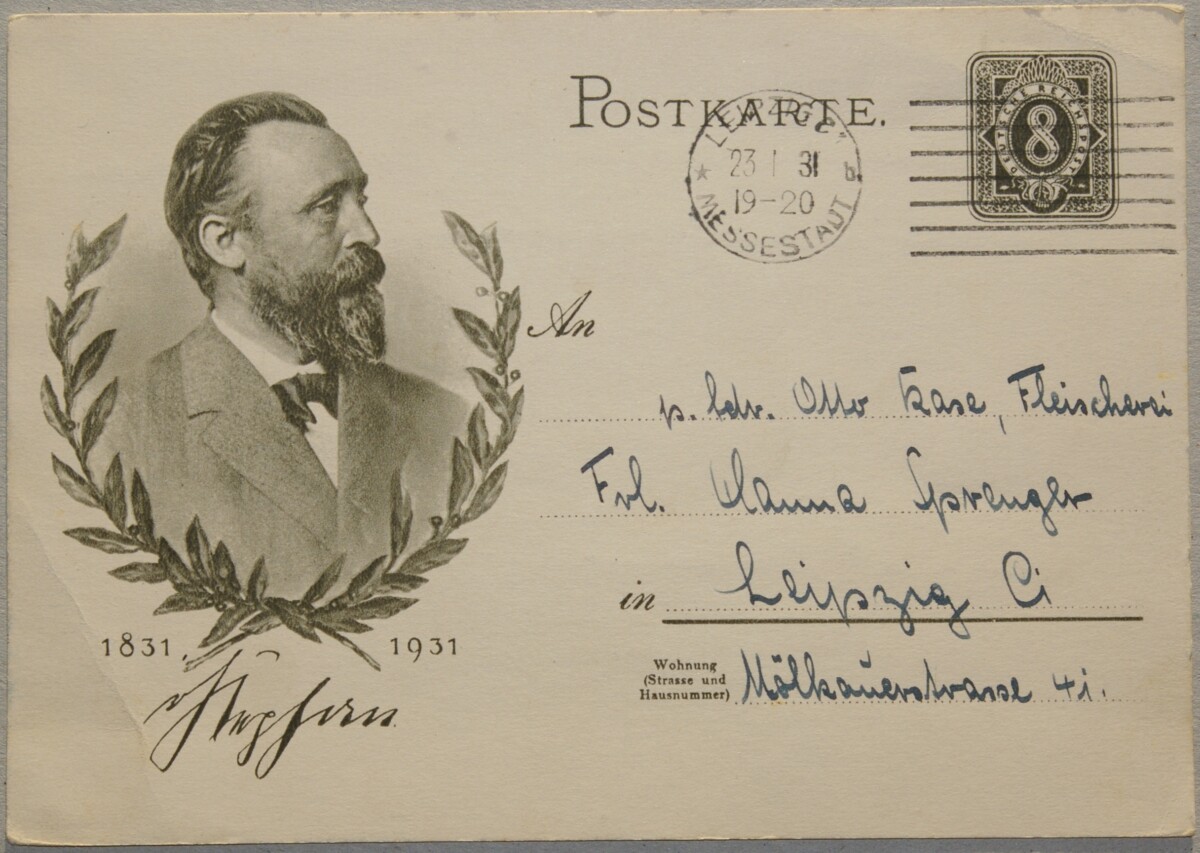 POSTKARTE.
DEUTSCHE REICHSPOST
8
LEIPZIG C1
23 1 31 b
19-20
MESSESTADT
An
p. Adr. Otto Kase, Fleischerei
Frl. Hanna Sprenger
in Leipzig Ci
Wohnung
(Strasse und
Hausnummer) Mölkauerstrasse 41.
1831. 1931
Stephan